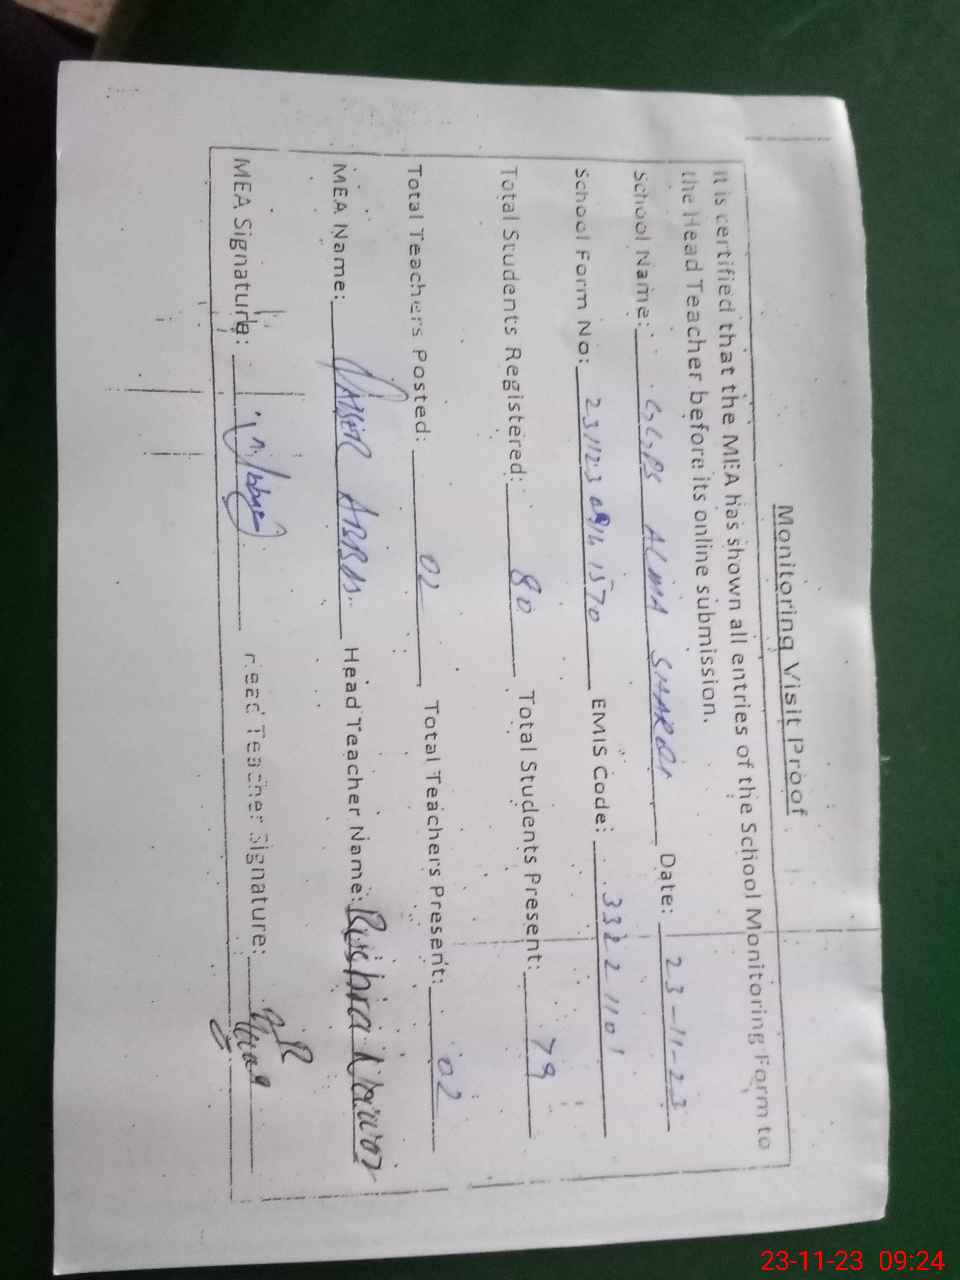 Monitoring Visit Proof
It is certified that the MEA has shown all entries of the School Monitoring Form to
the Head Teacher before its online submission.
School Name: GGPS ALMA SHARQI Date: 23-11-23
School Form No: EMIS Code: 33221101
Total Students Registered: 80 Total Students Present: 79
Total Teachers Posted: 02 Total Teachers Present: 02
MEA Name: ABBAS. Head Teacher Name: Bushra
MEA Signature: Head Teacher Signature:
23-11-23 09:24